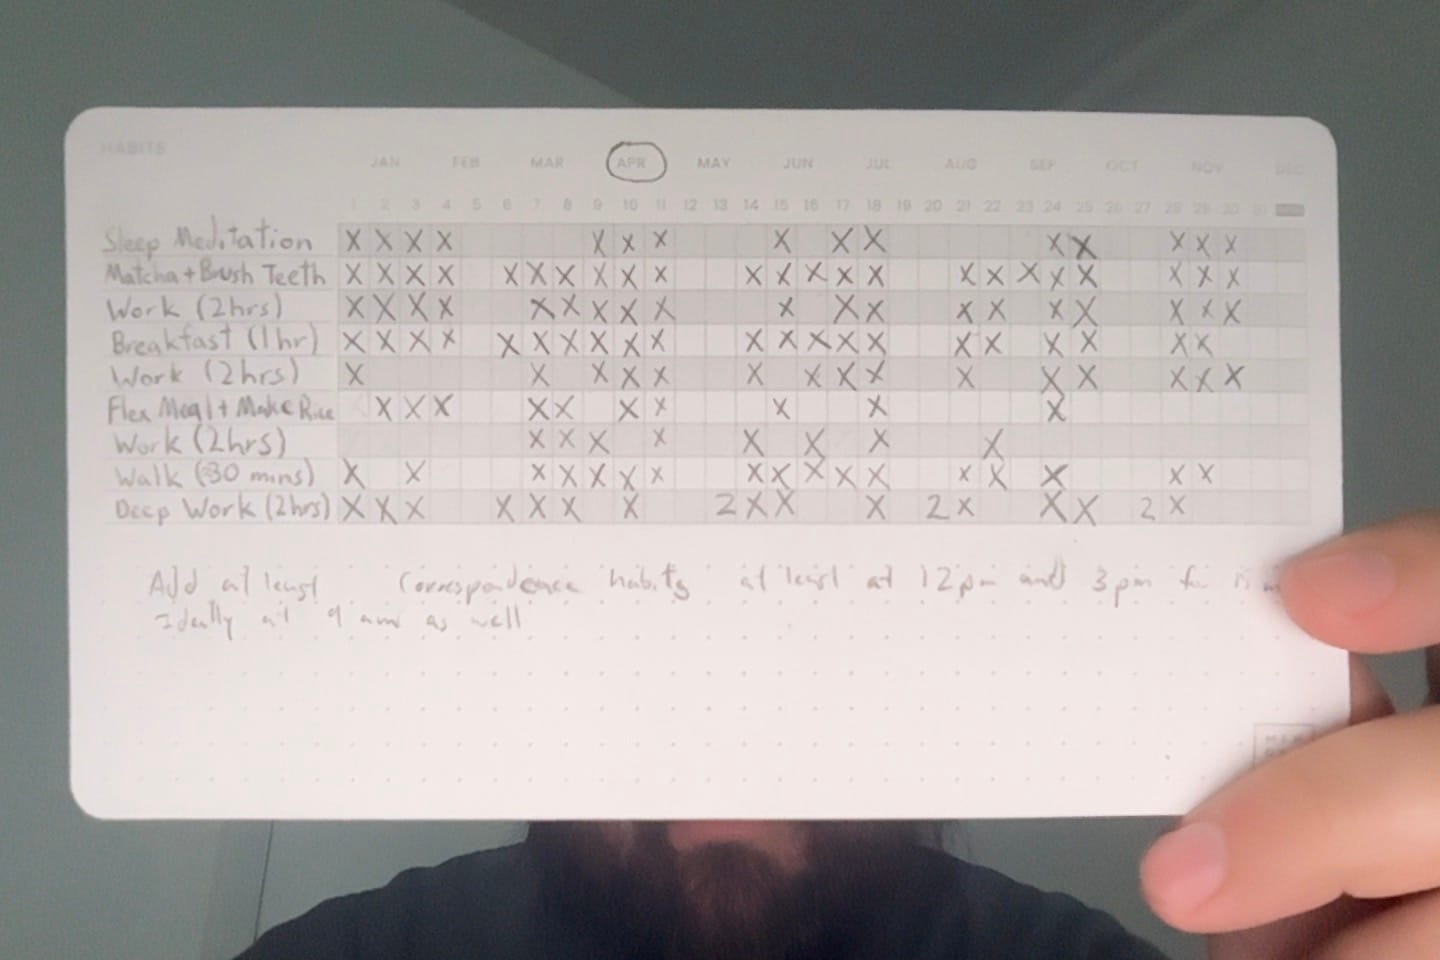 HABITS
JAN FEB MAR APR MAY JUN JUL AUG SEP OCT NOV DEC
1 2 3 4 5 6 7 8 9 10 11 12 13 14 15 16 17 18 19 20 21 22 23 24 25 26 27 28 29 30 31
Sleep Meditation X X X X X X X X X X X X X X X
Matcha + Brush Teeth X X X X X X X X X X X X X X X X X X X X X X X
Work (2hrs) X X X X X X X X X X X X X X X X X X X
Breakfast (1hr) X X X X X X X X X X X X X X X X X X X X X
Work (2hrs) X X X X X X X X X X X X X X X
Flex Meal + Make Rice X X X X X X X X X X
Work (2hrs) X X X X X X X X
Walk (30 mins) X X X X X X X X X X X X X X X X X
Deep Work (2hrs) X X X X X X X 2 X X X 2 X X X 2 X
Add at least Correspondence habits at least at 12pm and 3pm for
Ideally at 9 am as well